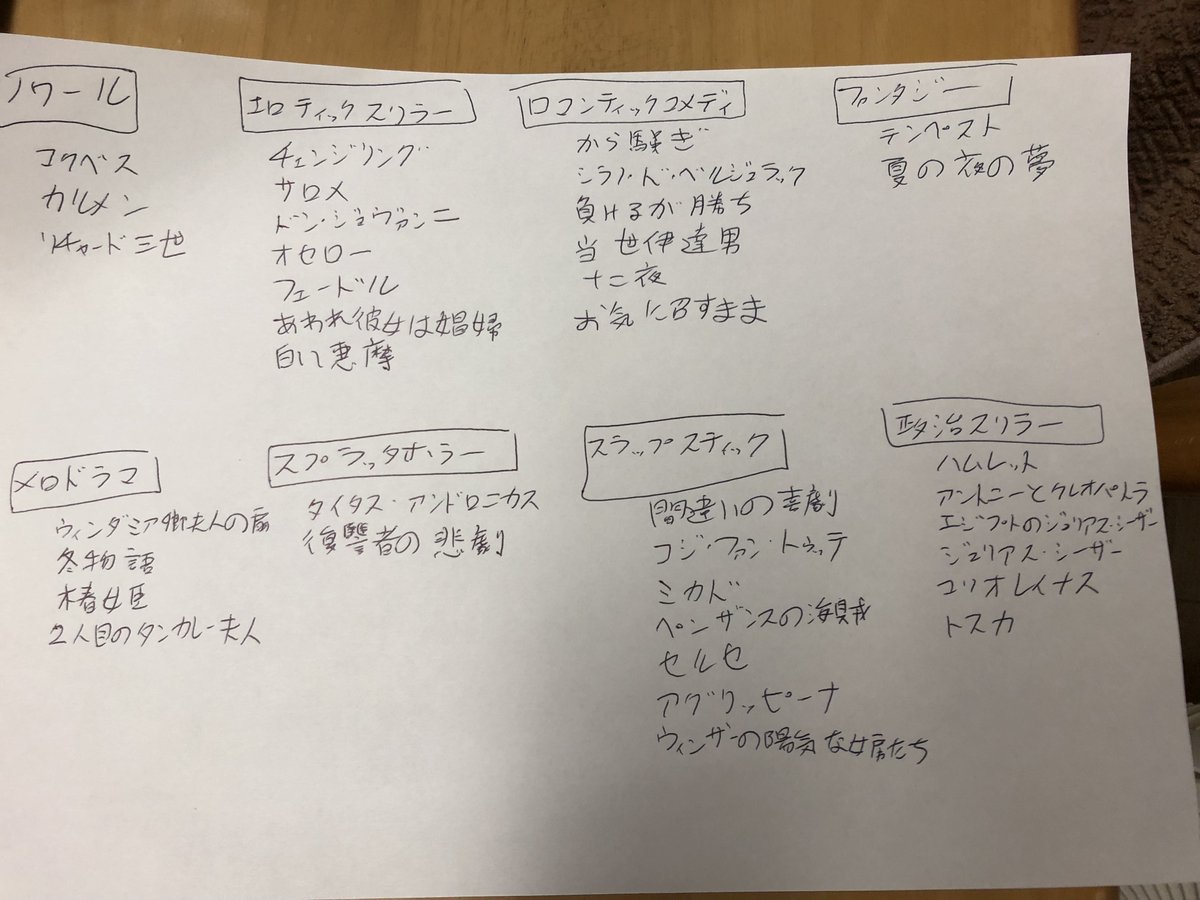 ノワール
マクベス
カルメン
リチャード三世
エロティックスリラー
チェンジリング
サロメ
ドン・ジョヴァンニ
オセロー
フェードル
あわれ彼女は娼婦
白い悪魔
ロマンティックコメディ
から騒ぎ
シラノ・ド・ベルジュラック
負けるが勝ち
当世伊達男
十二夜
お気に召すまま
ファンタジー
テンペスト
夏の夜の夢
メロドラマ
ウィンダミア卿夫人の扇
冬物語
椿姫
2人目のタンカレー夫人
スプラッタホラー
タイタス・アンドロニカス
復讐者の悲劇
スラップスティック
間違いの喜劇
コジ・ファン・トゥッテ
ミカド
ペンザンスの海賊
セルセ
アグリッピーナ
ウィンザーの陽気な女房たち
政治スリラー
ハムレット
アントニーとクレオパトラ
エジプトのジュリアス・シーザー
ジュリアス・シーザー
コリオレイナス
トスカ